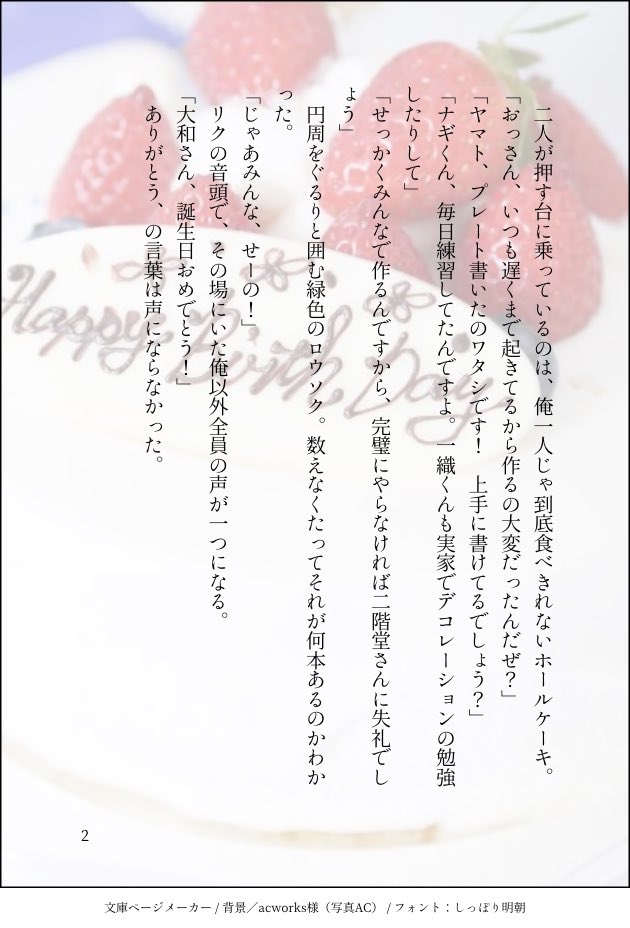 二人が押す台に乗っているのは、俺一人じゃ到底食べきれないホールケーキ。
「おっさん、いつも遅くまで起きてるから作るの大変だったんだぜ？」
「ヤマト、プレート書いたのワタシです！　上手に書けてるでしょう？」
「ナギくん、毎日練習してたんですよ。一織くんも実家でデコレーションの勉強
したりして」
「せっかくみんなで作るんですから、完璧にやらなければ二階堂さんに失礼でし
ょう」
円周をぐるりと囲む緑色のロウソク。数えなくたってそれが何本あるのかわか
った。
「じゃあみんな、せーの！」
リクの音頭で、その場にいた俺以外全員の声が一つになる。
「大和さん、誕生日おめでとう！」
ありがとう、の言葉は声にならなかった。
Happy Birth Day
2
文庫ページメーカー / 背景／acworks様（写真AC） / フォント：しっぽり明朝